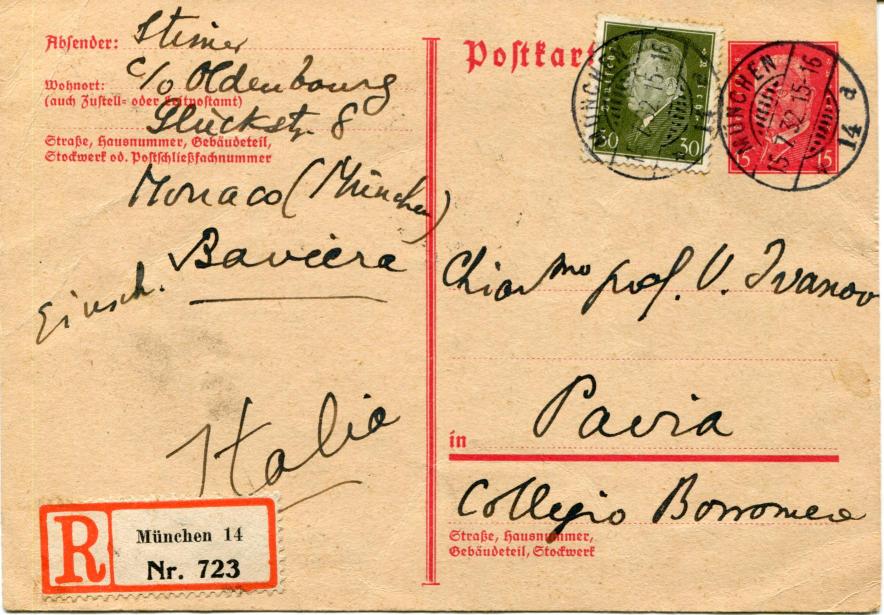 Absender: Steiner
c/o Oldenbourg
Wohnort:
(auch Zustell- oder Leitpostamt)
Glückstr. 8
Straße, Hausnummer, Gebäudeteil,
Stockwerk od. Postschließfachnummer
Monaco (München)
Baviera
Einsch.
Italia
R
München 14
Nr. 723
Postkarte
Deutsches Reich
30 30
15 15
MÜNCHEN
15.7.32.15-16
14 d
Chiarmo prof. V. Ivanov
in Pavia
Collegio Borromeo
Straße, Hausnummer,
Gebäudeteil, Stockwerk